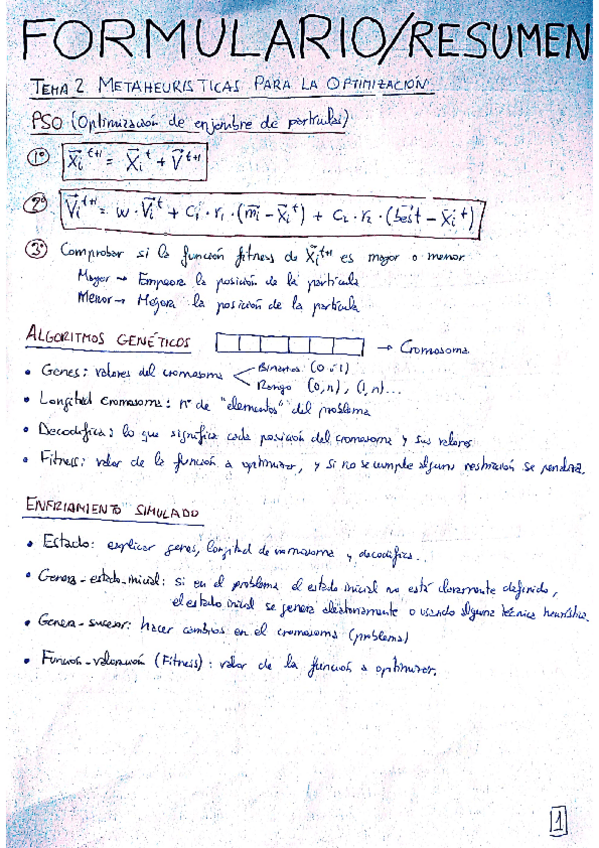 FORMULARIO/RESUMEN
TEMA 2. METAHEURISTICAS PARA LA OPTIMIZACIÓN
PSO (Optimización de enjambre de partículas)
1º X⃗i^t+1 = X⃗i^t + V⃗^t+1
2º V⃗i^t+1 = w · V⃗i^t + C1 · r1 · (m⃗i - X⃗i^t) + C2 · r2 · (best - X⃗i^t)
3º Comprobar si la función fitness de X⃗i^t+1 es mayor o menor
Mayor → Empeora la posición de la partícula
Menor → Mejora la posición de la partícula
ALGORITMOS GENÉTICOS → Cromosoma
• Genes: valores del cromosoma < Binarios (0 ó 1)
Rango (0,n), (1,n)...
• Longitud cromosoma: nº de "elementos" del problema
• Decodifica: lo que significa cada posición del cromosoma y sus valores
• Fitness: valor de la función a optimizar, y si no se cumple alguna restricción se penaliza.
ENFRIAMIENTO SIMULADO
• Estado: explicar genes, longitud de cromosoma y decodifica...
• Genera-estado-inicial: si en el problema el estado inicial no está claramente definido,
el estado inicial se genera aleatoriamente o usando alguna técnica heurística.
• Genera-sucesor: hacer cambios en el cromosoma (problema)
• Función-valoración (Fitness): valor de la función a optimizar.
1